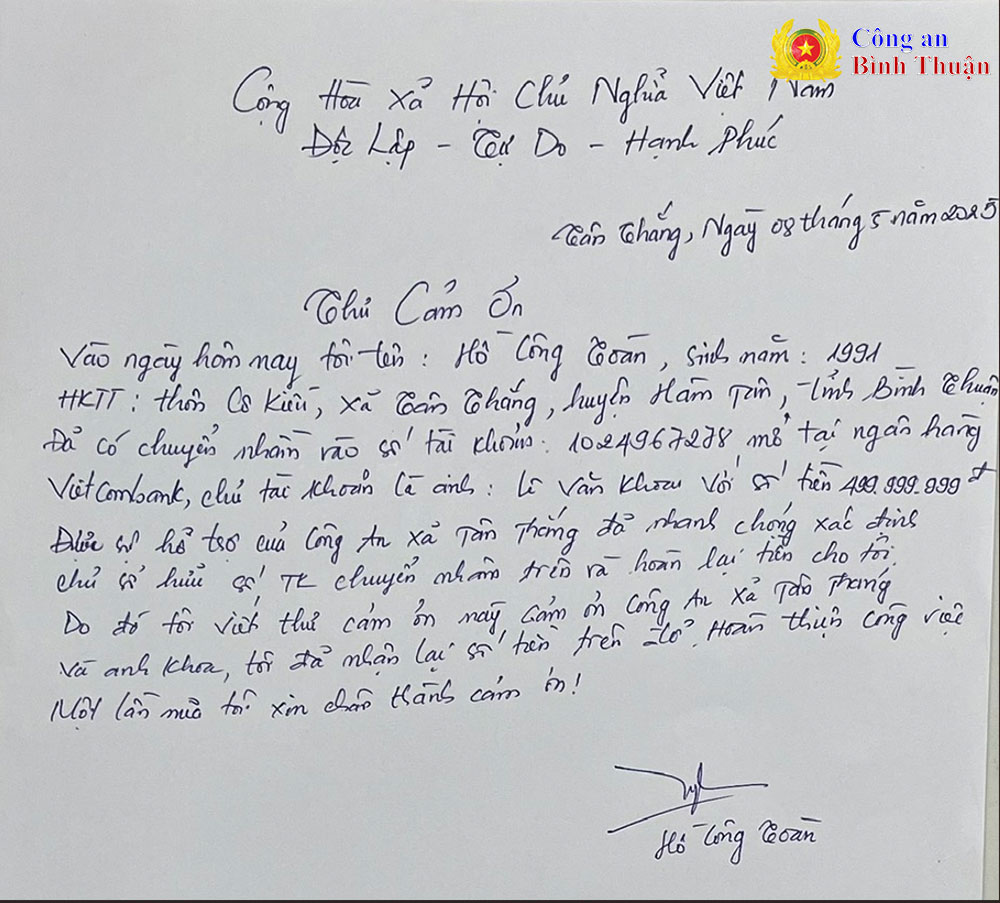 Công an
Bình Thuận
Cộng Hòa Xả Hội Chủ Nghĩa Việt Nam
Độc Lập - Tự Do - Hạnh Phúc
Tân Thắng, Ngày 08 tháng 5 năm 2025
Thư Cảm Ơn
Vào ngày hôm nay tôi tên : Hồ Công Toàn, sinh năm : 1991
HKTT : thôn Cô Kiều, xã Tân Thắng, huyện Hàm Tân, tỉnh Bình Thuận
Đả có chuyển nhầm vào số tài khoản : 1024967278 mở tại ngân hàng
Vietcombank, chủ tài khoản là anh : Lê Văn Khoa với số tiền 499.999.999đ
Được sự hổ trợ của Công An xã Tân Thắng đả nhanh chóng xác định
chủ sở hửu số TK chuyển nhầm trên và hoàn lại tiền cho tôi.
Do đó tôi viết thư cảm ơn này cảm ơn Công An xã Tân Thắng
và anh Khoa, tôi đả nhận lại số tiền trên Hoàn thiện công việc
Một lần nữa tôi xin chân thành cảm ơn!
Hồ Công Toàn